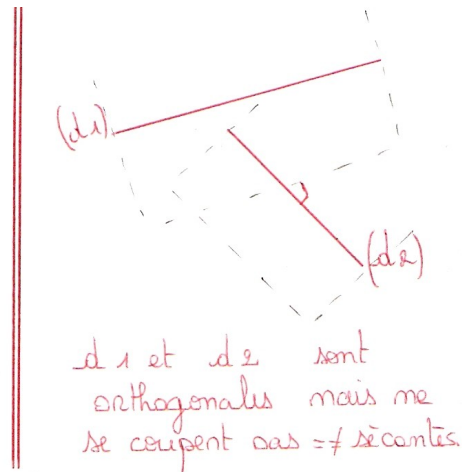 (d1)
(d2)
d1 et d2 sont
orthogonales mais ne
se coupent pas =≠ sècantes.